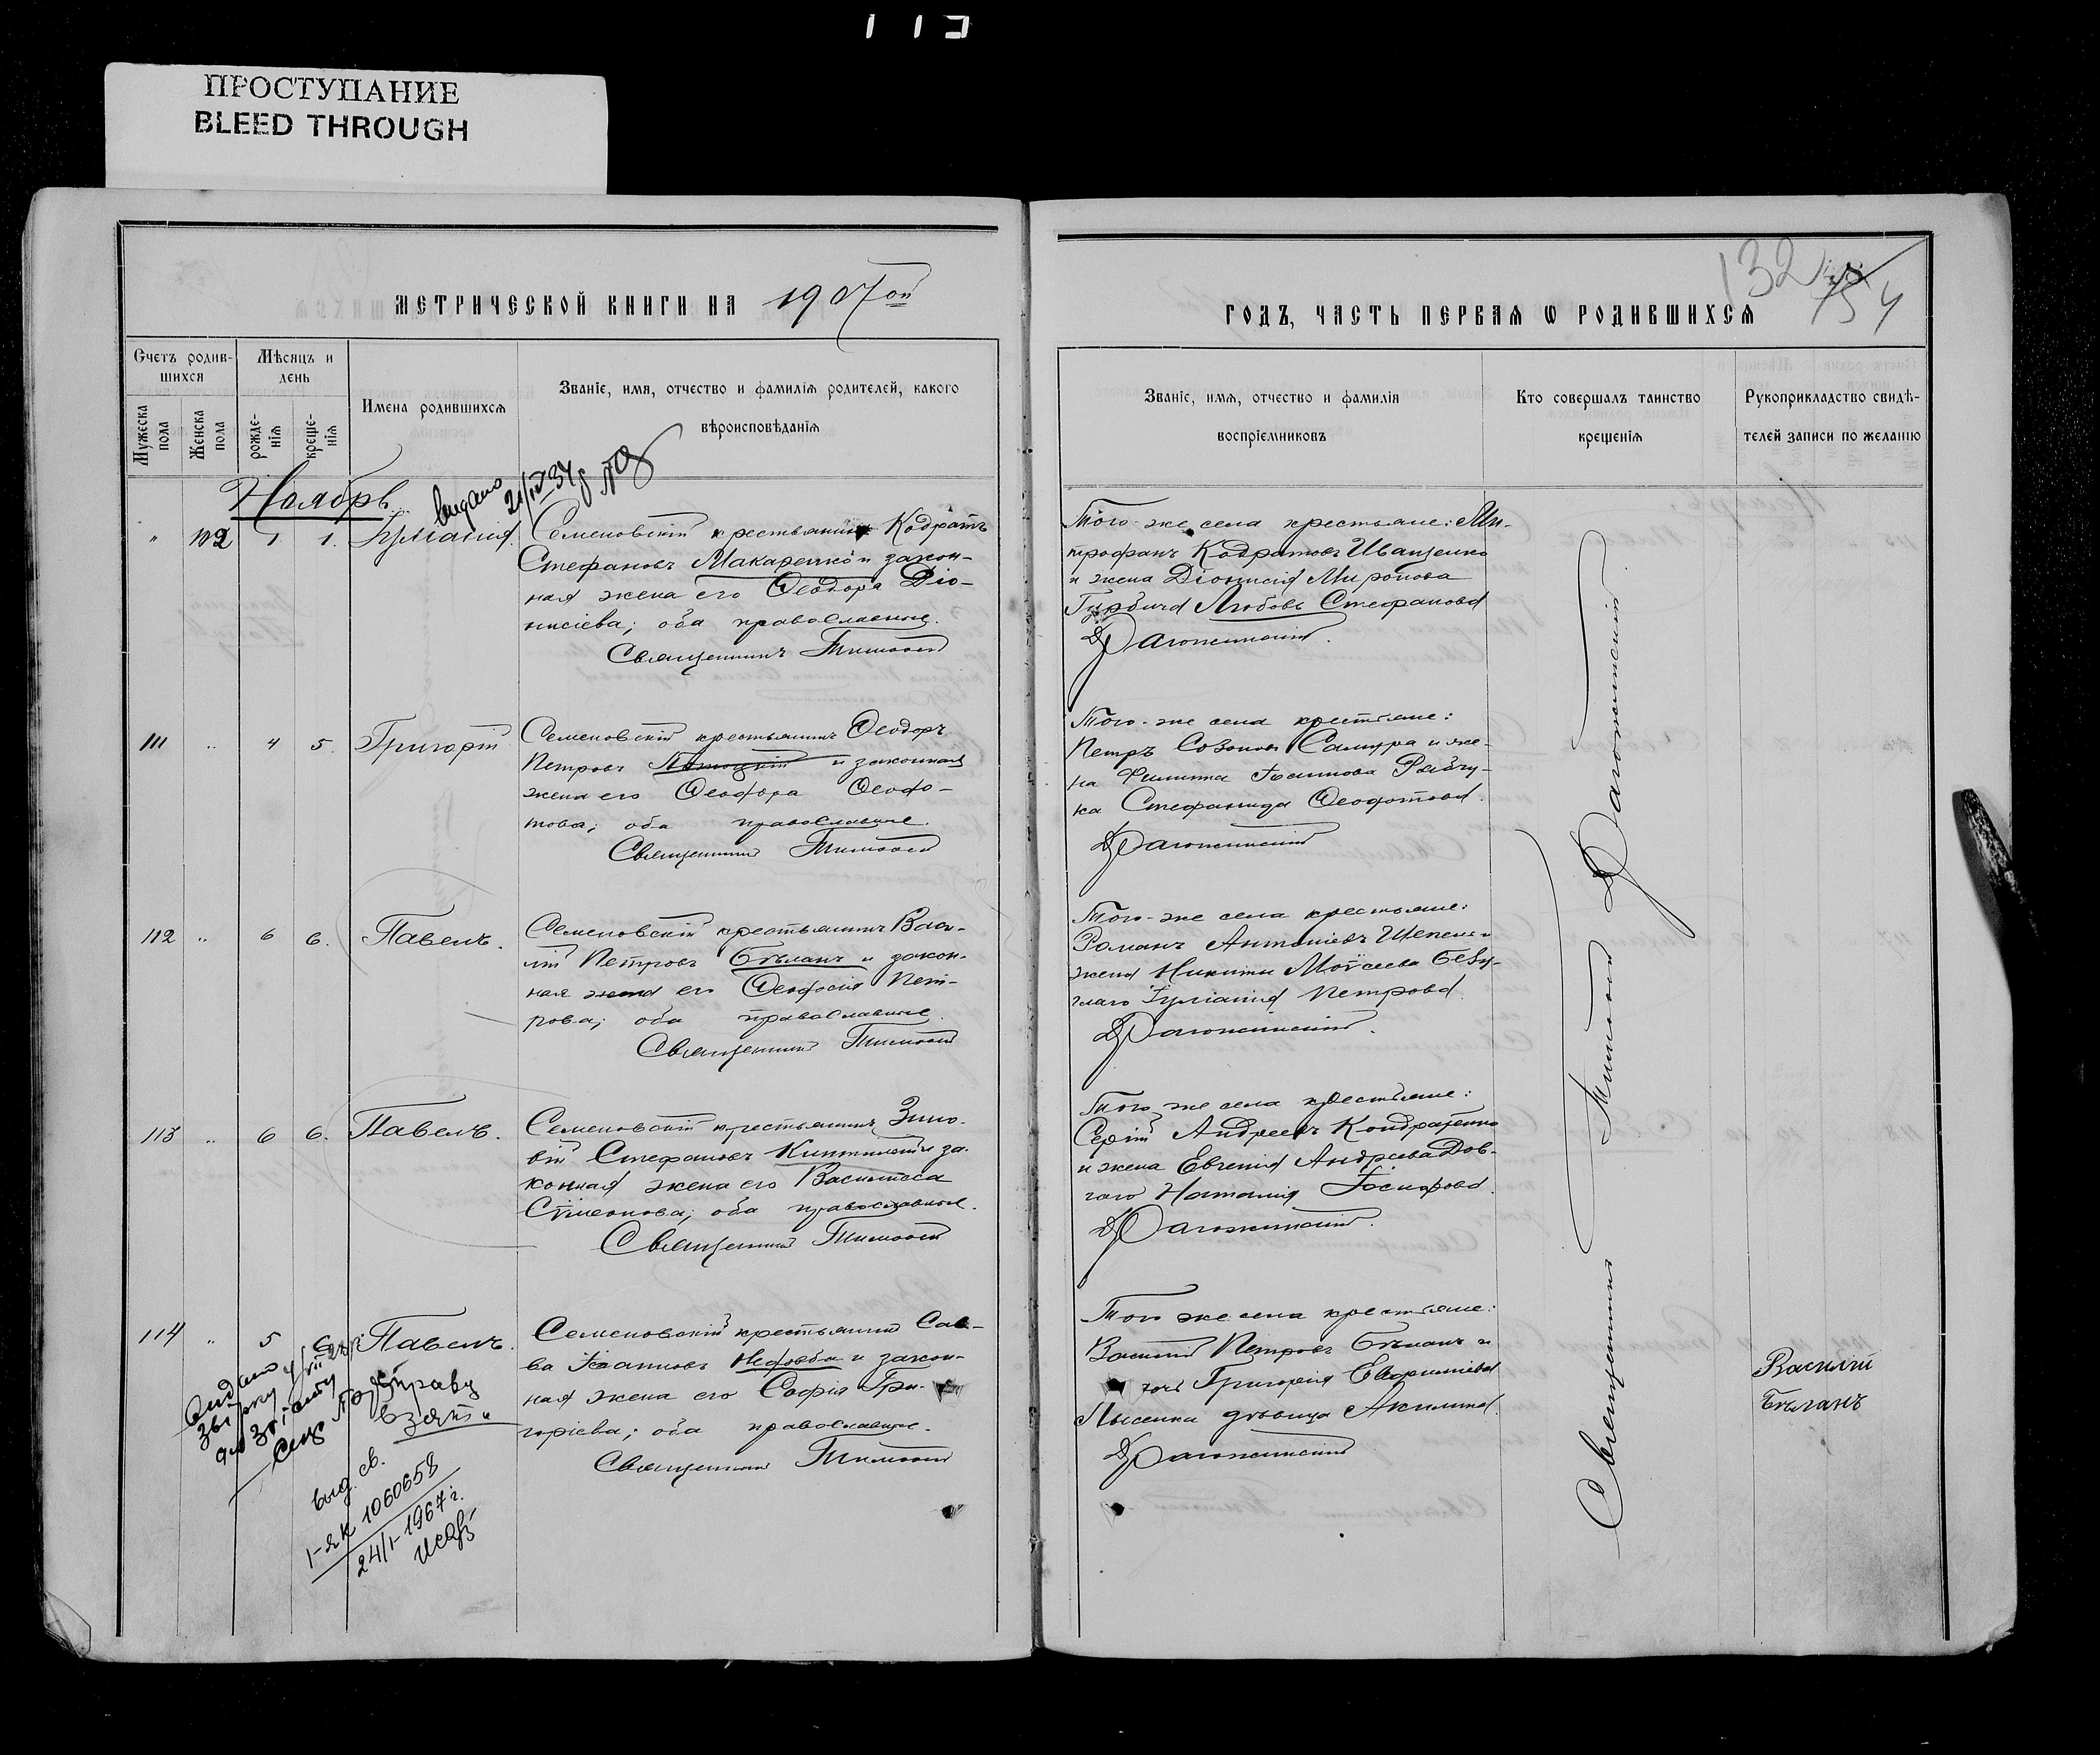 113
ПРОСТУПАНИЕ
BLEED THROUGH
МЕТРИЧЕСКОЙ КНИГИ НА 1907ой
Счетъ родив-
шихся
Мужеска пола
Женска пола
Мѣсяцъ и
день
рожде-
нія
креще-
нія
Имена родившихся
Званіе, имя, отчество и фамилія родителей, какого
вѣроисповѣданія
Ноябрь
видано
" 102 1 1. Іуліанія.
Семеновскій крестьянинъ Кодратъ
Стефановъ Макаренко и закон-
ная жена его Ѳеодора Діо-
нисіева; оба православные.
Священникъ Тимоѳей
111 " 4 5. Григорій
Семеновскій крестьянинъ Ѳеодоръ
Петровъ и законная
жена его Ѳеодора Ѳеодо-
това; оба православные.
Священникъ Тимоѳей
112 " 6 6. Павелъ.
Семеновскій крестьянинъ Васи-
лій Петровъ Бѣланъ и закон-
ная жена его Ѳеодосія Пет-
рова; оба православные.
Священникъ Тимоѳей
113 " 6 6. Павелъ.
Семеновскій крестьянинъ Зино-
вій Стефановъ и за-
конная жена его Василисса
Сѵмеонова; оба православные.
Священникъ Тимоѳей
114 " 5 6. Павелъ.
Семеновскій крестьянинъ Сав-
ва Іоанновъ и закон-
ная жена его Софія Гри-
горіева; оба православные.
Священникъ Тимоѳей
выд. св.
I-ЯК 1060658
24/I-1967г.
132
ГОДЪ, ЧАСТЬ ПЕРВАЯ Ѡ РОДИВШИХСЯ
Званіе, имя, отчество и фамилія
воспріемниковъ
Кто совершалъ таинство
крещенія
Рукоприкладство свидѣ-
телей записи по желанію
Того-же села крестьяне: Ми-
трофанъ Кодратовъ Иващенко
и жена Діонисія Миронова
Любовь Стефанова
Драгожинскій.
Того-же села крестьяне:
Петръ Созоновъ и же-
на Филиппа Іоаннова
Стефанида Ѳеодотова.
Драгожинскій
Того-же села крестьяне:
Романъ Антоніевъ Шепель и
жена Никиты Моѵсеева Безу-
глаго Іуліанія Петрова.
Драгожинскій.
Того же села крестьяне:
Сергій Андреевъ Кондратенко
и жена Евгенія Андреева Дов-
гаго Наталія Іосифова.
Драгожинскій.
Того же села крестьяне:
Василій Петровъ Бѣланъ и
дочь Григорія
Лысенка дѣвица Акилина.
Драгожинскій
Священникъ Тимоѳей Драгожинскій
Василій
Бѣланъ